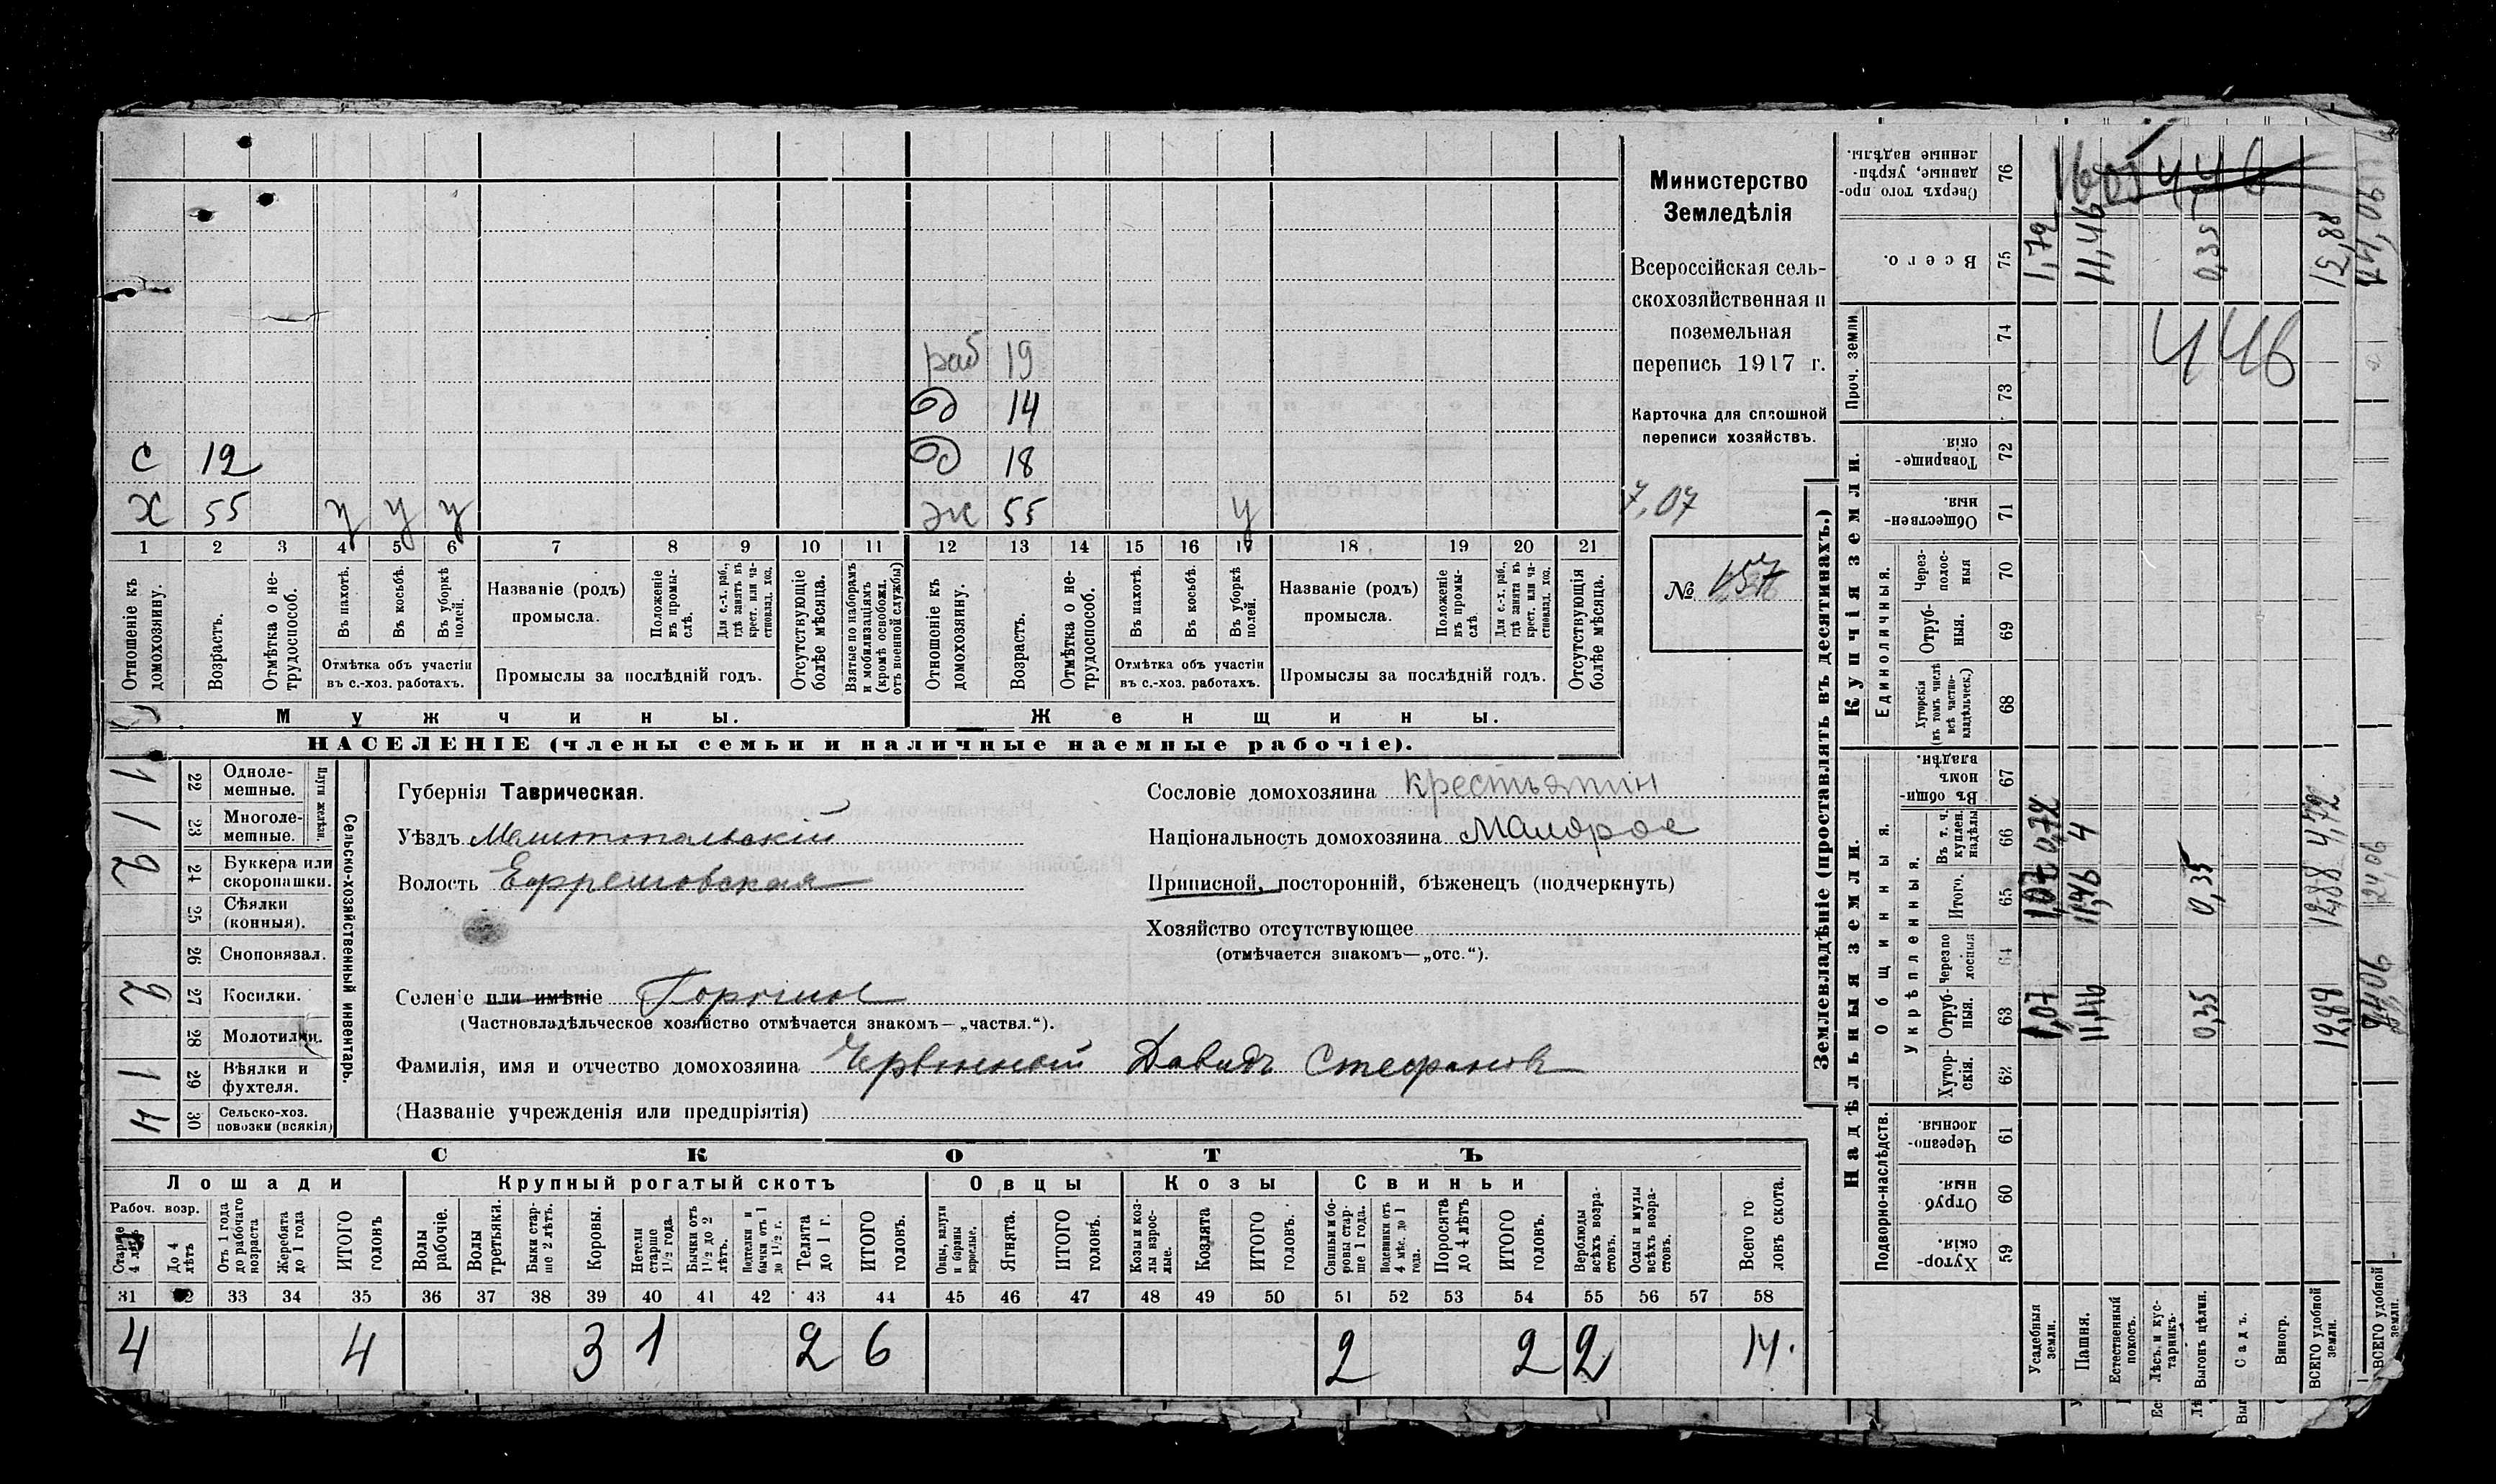 Министерство
Земледѣлія
Всероссійская сель-
скохозяйственная и
поземельная
перепись 1917 г.
Карточка для сплошной
переписи хозяйствъ.
7,07
№ 157
раб 19
д 14
с 12 д 18
х 55 у у у ж 55 у
1 2 3 4 5 6 7 8 9 10 11 12 13 14 15 16 17 18 19 20 21
Отношеніе къ домохозяину.
Возрастъ.
Отмѣтка о не-трудоспособ.
Въ пахотѣ.
Въ косьбѣ.
Въ уборкѣ полей.
Отмѣтка объ участіи
въ с.-хоз. работахъ.
Названіе (родъ)
промысла.
Положеніе въ промы-слѣ.
Для с.-х. раб., гдѣ занятъ въ крест. или ча-стновлад. хоз.
Промыслы за послѣдній годъ.
Отсутствующіе болѣе мѣсяца.
Взятые по наборамъ и мобилизаціямъ (кромѣ освобожд. отъ военной службы)
Отношеніе къ домохозяину.
Возрастъ.
Отмѣтка о не-трудоспособ.
Въ пахотѣ.
Въ косьбѣ.
Въ уборкѣ полей.
Отмѣтка объ участіи
въ с.-хоз. работахъ.
Названіе (родъ)
промысла.
Положеніе въ промы-слѣ
Для с.-х. раб., гдѣ занята въ крест. или ча-стновлад. хоз.
Промыслы за послѣдній годъ.
Отсутствующія болѣе мѣсяца.
Мужчины. Женщины.
НАСЕЛЕНІЕ (члены семьи и наличные наемные рабочіе).
Сельско-хозяйственный инвентарь.
Плуги желѣзн.
1 22 Однолемешные.
1 23 Многолемешные.
2 24 Буккера или скоропашки.
25 Сѣялки (конныя).
26 Сноповязал.
2 27 Косилки.
28 Молотилки.
1 29 Вѣялки и фухтеля.
4 30 Сельско-хоз. повозки (всякія)
Губернія Таврическая.
Уѣздъ Мелитопольскій
Волость Ефремовская
Селеніе или имѣніе
(Частновладѣльческое хозяйство отмѣчается знакомъ—„частвл.“).
Фамилія, имя и отчество домохозяина Червонный Давидъ Стефановъ
(Названіе учрежденія или предпріятія)
Сословіе домохозяина крестьянин
Національность домохозяина Малорос
Приписной, посторонній, бѣженецъ (подчеркнуть)
Хозяйство отсутствующее
(отмѣчается знакомъ—„отс.“).
СКОТЪ
Лошади Крупный рогатый скотъ Овцы Козы Свиньи
Рабоч. возр.
Старше 4 лѣтъ
До 4 лѣтъ
Отъ 1 года до рабочаго возраста
Жеребята до 1 года
ИТОГО головъ
Волы рабочіе.
Волы третьяки.
Быки стар-ше 2 лѣтъ.
Коровы.
Нетели старше 1½ года.
Бычки отъ 1½ до 2 лѣтъ.
Подтелки и бычки отъ 1 до 1½ г.
Телята до 1 г.
ИТОГО головъ.
Овцы, валухи и бараны взрослые.
Ягнята.
ИТОГО головъ.
Козы и коз-лы взрос-лые.
Козлята
ИТОГО головъ.
Свиньи и бо-ровы стар-ше 1 года.
Подсвинки отъ 4 мѣс. до 1 года.
Поросята до 4 лѣтъ
ИТОГО головъ.
Верблюды всѣхъ возра-стовъ.
Ослы и мулы всѣхъ возра-стовъ.
Всего го ловъ скота.
31 32 33 34 35 36 37 38 39 40 41 42 43 44 45 46 47 48 49 50 51 52 53 54 55 56 57 58
4 4 3 1 2 6 2 2 2 14.
Землевладѣніе (проставлять въ десятинахъ.)
Надѣльныя земли. Купчія земли. Проч. земли
Подворно-наслѣдств.
Общинныя.
Укрѣпленныя.
Единоличныя.
59 Хутор-скія.
60 Отруб ныя.
61 Черезпо-лосныя.
62 Хутор-скія.
63 Отруб-ныя.
64 Черезпо лосныя
65 Итого.
66 Въ т. ч. куплен. надѣлы
67 Въ общи-номъ владѣн.
68 Хуторскія (въ томъ числѣ всѣ частно-владѣльческ.)
69 Отруб-ныя.
70 Через-полос-ныя
71 Обществен-ныя.
72 Товарище-скія
73
74
75 Всего.
76 Сверхъ того про-данные, укрѣп-ленные надѣлы.
Усадебныя земли. 1,07 1,07 0,72 1,79
Пашня. 11,46 11,46 4 11,46
Естественный покосъ.
Лѣсъ и кус-тарникъ
Выгонъ цѣлин. 0,35 0,35 0,35
Садъ.
Виногр.
ВСЕГО удобной земли. 12,88 12,88 4,72
446
ВСЕГО удобной земли. 24,06